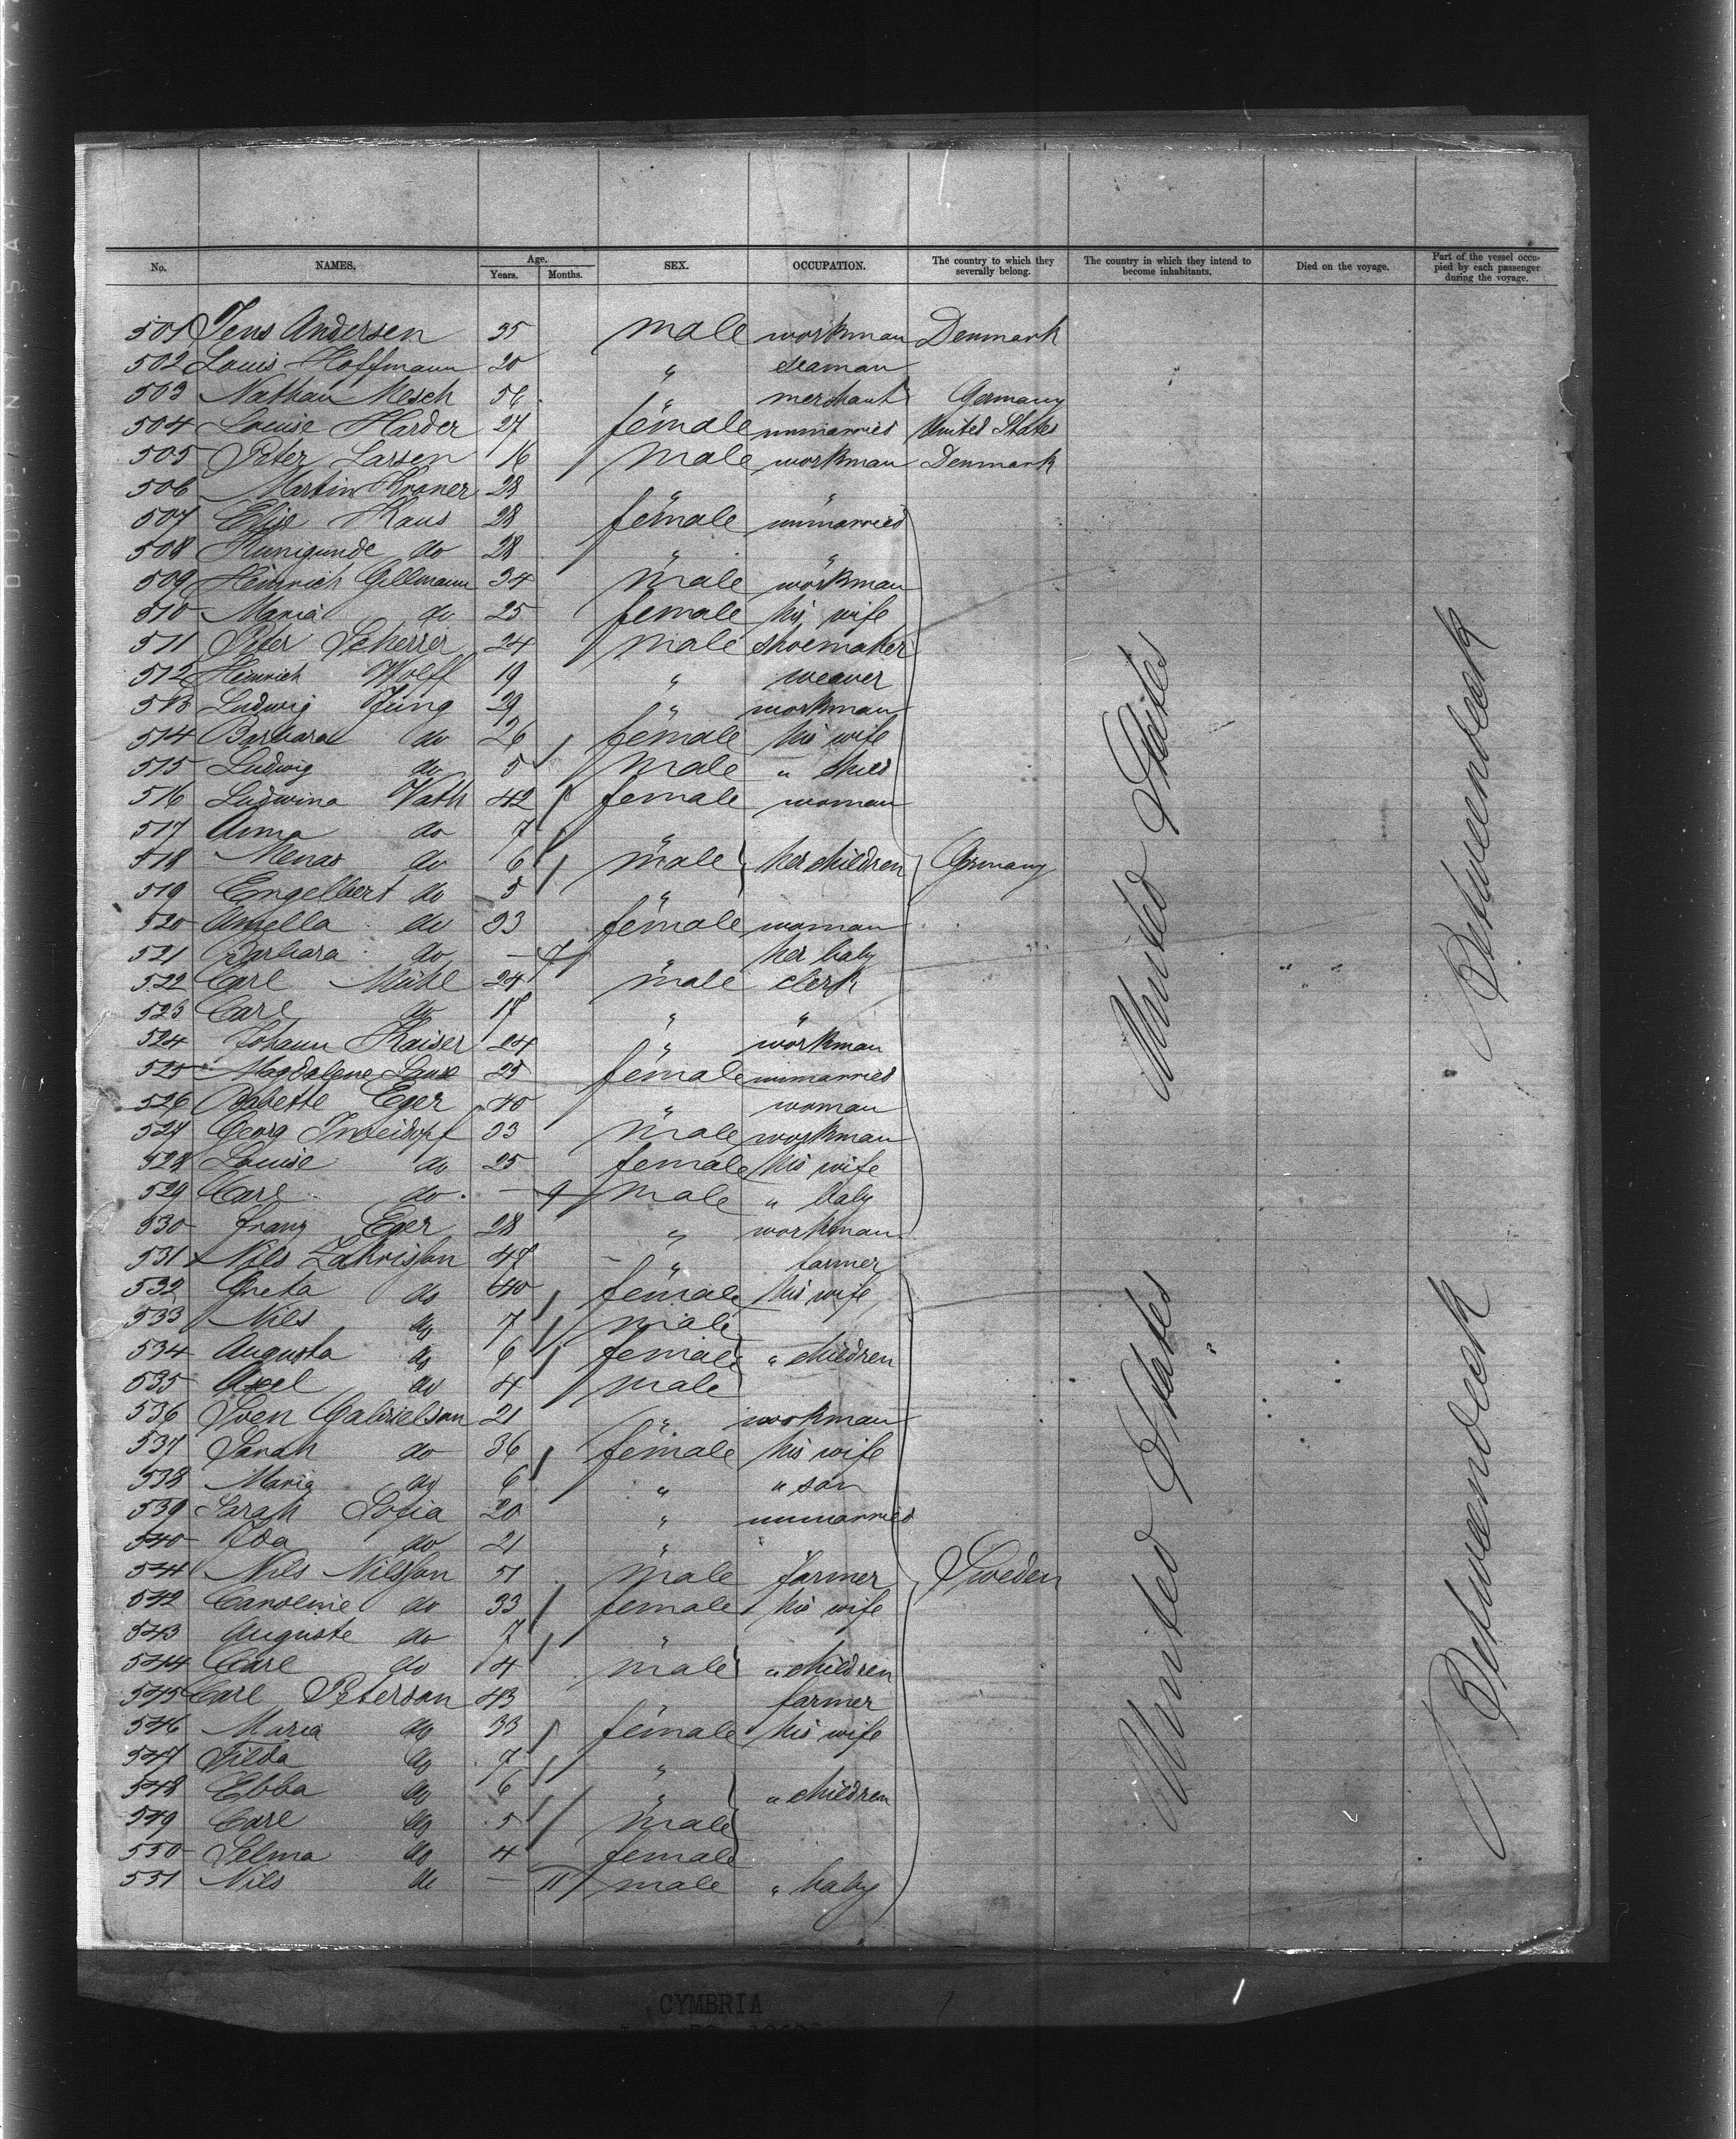 No. NAMES. Age. Years. Months. SEX. OCCUPATION. The country to which they severally belong. The country in which they intend to become inhabitants. Died on the voyage. Part of the vessel occupied by each passenger during the voyage.
501 Jens Andersen 35 male workman Denmark
502 Louis Hoffmann 20 " seaman
503 Nathan Mesch 56 " merchant Germany
504 Louise Harder 27 female unmarried United States
505 Peter Larsen 16 male workman Denmark
506 Martin Kroner 28 " "
507 Elise Kaus 28 female unmarried
508 Kunigunde do 28 " "
509 Heinrich Gellmann 34 male workman
510 Maria do 25 female his wife
511 Peter Scherrer 24 male shoemaker
512 Heinrich Wolff 19 " weaver
513 Ludwig Jung 29 " workman
514 Barbara do 26 female his wife
515 Ludwig do 5 male " child
516 Ludwina Vath 42 female woman
517 Anna do 7 "
518 Menas do 6 male her children Germany
519 Engelbert do 5 "
520 Amella do 33 female woman
521 Barbara do - 7 " her baby
522 Carl Mühl 24 male clerk
523 Carl do 17 " "
524 Johann Kaiser 24 " workman
525 Magdalene 25 female unmarried
526 Babette Eger 40 " woman
527 Georg 33 male workman
528 Louise do 25 female his wife
529 Carl do - 9 male " baby
530 Franz Eger 28 " workman
531 Nils Zakrisson 47 " farmer
532 Greta do 40 female his wife
533 Nils do 7 male
534 Augusta do 6 female " children
535 Axel do 4 male
536 Sven Gabrielson 21 " workman
537 Sarah do 36 female his wife
538 Maria do 6 " " son
539 Sarah Sofia 20 " unmarried
540 Ida do 21 " "
541 Nils Nilsson 51 male farmer Sweden
542 Caroline do 33 female his wife
543 Auguste do 7 "
544 Carl do 4 male " children
545 Carl Peterson 43 farmer
546 Maria do 33 female his wife
547 Tilda do 7 "
548 Ebba do 6 " " children
549 Carl do 5 male
550 Selma do 4 female
551 Nils do - 11 male " baby
United States
Betweendeck
United States
Betweendeck
CYMBRIA